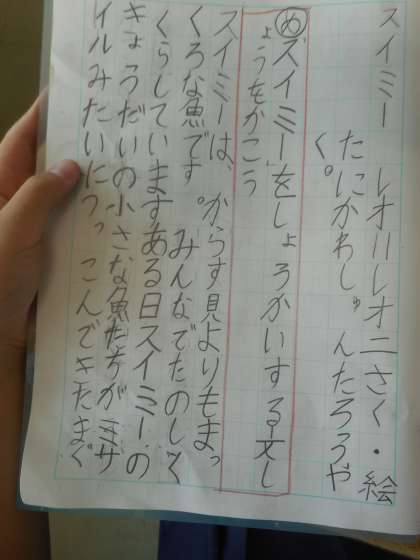 スイミー　レオ=レオニさく・絵
たにかわしゅんたろうや
く。
めスイミーをしょうかいする文し
ょうをかこう
スイミーは、からす見よりもまっ
くろな魚です。みんなでたのしく
くらしていますある日スイミーの
きょうだいの小さな魚たちがミサ
イルみたいにつっこんできたまぐ